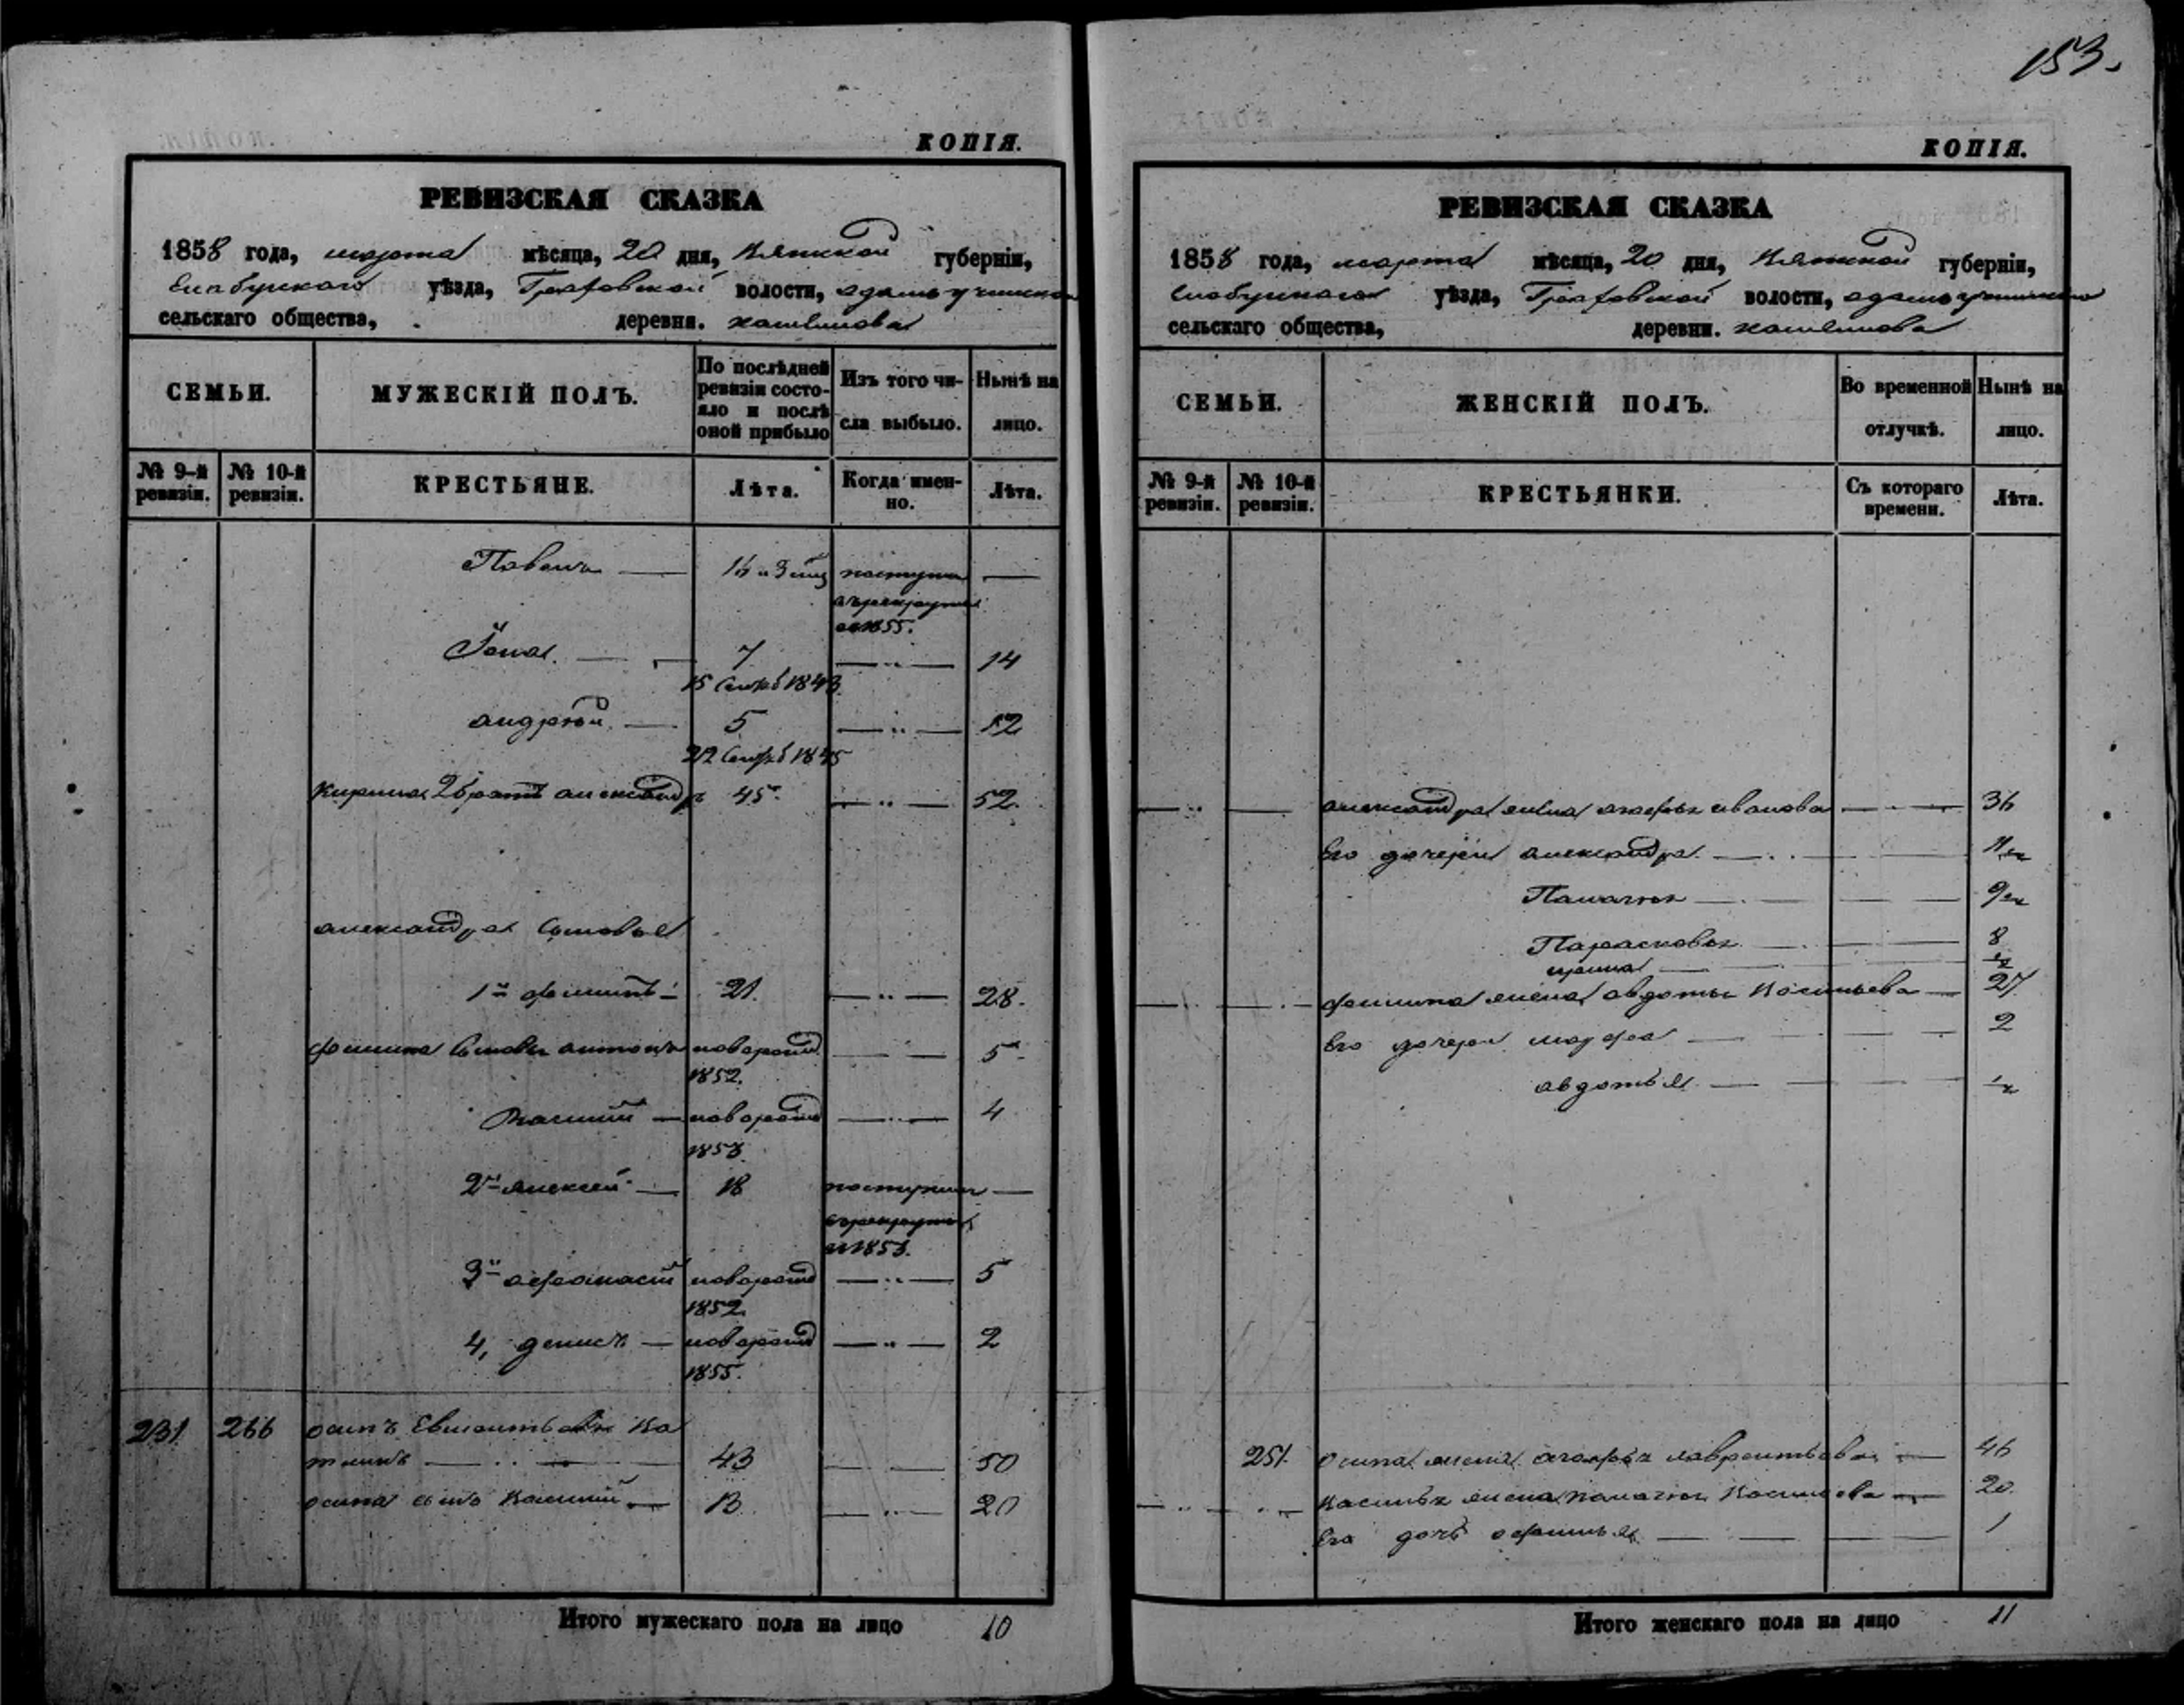 153.
КОПІЯ.
РЕВИЗСКАЯ СКАЗКА
1858 года, марта мѣсяца, 20 дня, Вятской губерніи,
Елабужского уѣзда, Граховской волости,
сельскаго общества, деревни.
СЕМЬИ.
МУЖЕСКІЙ ПОЛЪ.
По послѣдней ревизіи состояло и послѣ оной прибыло
Изъ того числа выбыло.
Нынѣ на лицо.
№ 9-й ревизіи.
№ 10-й ревизіи.
КРЕСТЬЯНЕ.
Лѣта.
Когда именно.
Лѣта.
Павелъ — поступи —
1855.
Іона. — 7 — „ — 14
15 1843.
андрей. — 5 — „ — 12
22 1845
Кирила 2 братъ александръ 45. — „ — 52.
александра сыновья
1й фелипъ — 21. — „ — 28.
сыновья антонъ новорожд — 5
1852.
— новорожд — „ — 4
1853.
2й алексей — 18 поступилъ —
3й афонасей новорожд — „ — 5
1852.
4, денисъ — новорожд — „ — 2
1855.
231 266 осипъ
43 — 50
осипа сынъ Василий — 13. — „ — 20
Итого мужескаго пола на лицо 10
КОПІЯ.
РЕВИЗСКАЯ СКАЗКА
1858 года, марта мѣсяца, 20 дня, Вятской губерніи,
Елабужского уѣзда, Граховской волости,
сельскаго общества, деревни.
СЕМЬИ.
ЖЕНСКІЙ ПОЛЪ.
Во временной отлучкѣ.
Нынѣ на лицо.
№ 9-й ревизіи.
№ 10-й ревизіи.
КРЕСТЬЯНКИ.
Съ котораго времени.
Лѣта.
— „ — александра жена иванова — 36
Его дочери александра. — 11
Палагея — 9
Парасковья — 8
ирина — ½
жена авдотья Васильева — 27
Его дочери марфа — 2
авдотья — ½
251. осипа жена лаврентьева — 46
Василья жена палагея — 20.
Его дочь — 1
Итого женскаго пола на лицо 11